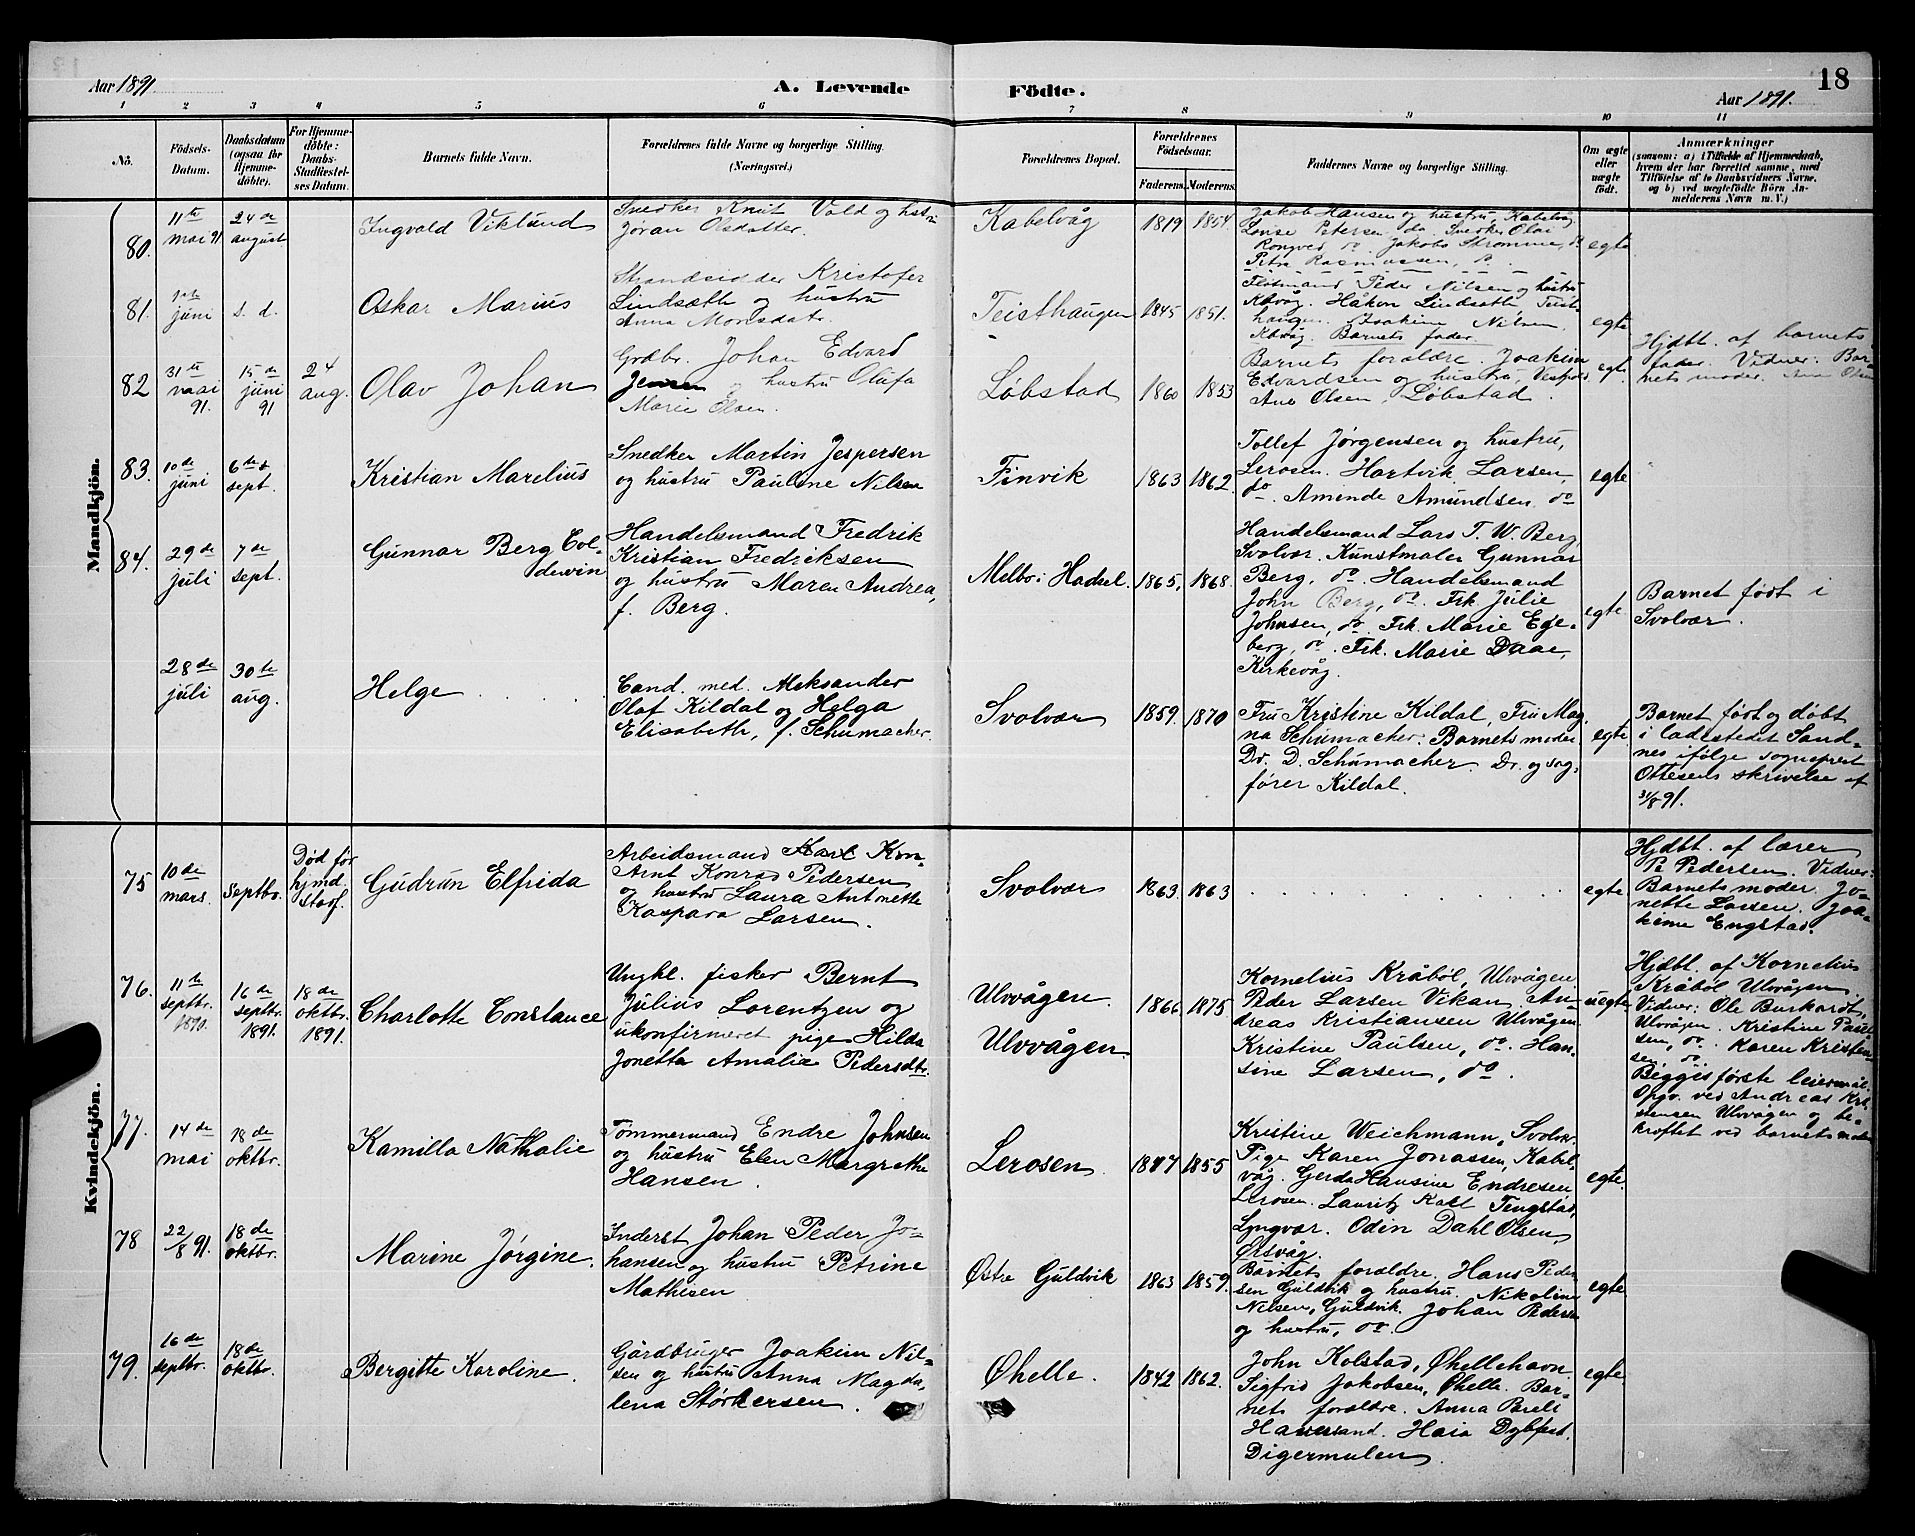 Aar 1891.
A. Levende Födte.
18
Aar 1891.
1 2 3 4 5 6 7 8 9 10 11
No.
Födsels-
Datum.
Daabsdatum
(ogsaa for
Hjemme-
döbte).
For Hjemme-
döbte:
Daabs-
Stadfæstel-
ses Datum.
Barnets fulde Navn.
Forældrenes fulde Navne og borgerlige Stilling.
(Næringsvei.)
Forældrenes Bopæl.
Forældrenes
Födselsaar.
Faderens. Moderens.
Faddernes Navne og borgerlige Stilling.
Om ægte
eller
uægte
födt.
Anmærkninger
(saasom: a) i Tilfælde af Hjemmedaab,
hvem der har forrettet samme, med
Tilföielse af to Daabsvidners Navne,
og b) ved uægtefödte Börn An-
melderens Navn m. V.)
Mandkjön.
80.
11te
mai 91
24de
august
Ingvald Viklund
Snedker Knut Vold og hustru
Joran Olsdatter.
Kabelvåg
1819 1854.
Jakob Hansen og hustru, Kabelvåg
Lovise Petersen do. Snedker Olai
Rongved, do. Jakobs Strømme, do
Petra Rasmussen, do.
egte
81.
1ste
juni
s. d.
Oskar Marius
Strandsidder Kristofer
Lindsæth og hustru
Anna Monsdatr.
Teisthaugen
1845 1851.
Peder Nilsen og hustru
Kbvåg. Håkon Lindsæth Teist-
haugen. Joakim Nilsen,
Kbvåg. Barnets fader.
egte
82
31te
mai
91.
15de
juni
91
24
aug.
Olav Johan
Grdbr. Johan Edvard
Jensen og hustru Olufa
Marie Olsen.
Løbstad
1860 1853
Barnets forældre. Joakim
Edvardsen og hustru,
Ane Olsen, Løbstad.
egte
Hjdbt. af barnets
fader. Vidner: Bar-
nets moder. Ana Olsen
83.
10de
juni
6te
sept.
Kristian Marelius
Snedker Martin Jespersen
og hustru Pauline Nilsen
Finvik
1863 1862.
Tollef Jørgensen og hustru,
Lerosen. Hartvik Larsen,
do. Amende Amundsen, do
egte
84.
29de
juli
7de
sept.
Gunnar Berg Col-
dewin
Handelsmand Fredrik
Kristian Fredriksen
og hustru Maren Andrea,
f. Berg.
Melbo i Hadsel.
1865, 1868.
Handelsmand Lars T. W. Berg
Svolvær. Kunstmaler Gunnar
Berg, do. Handelsmand
John Berg, do. Frk. Julie
Johnsen, do. Frk. Marie Ege-
berg, do. Frk. Marie Daae,
Kirkevåg.
egte
Barnet født i
Svolvær.
28de
juli
30te
aug.
Helge
Cand. med. Aleksander
Olaf Kildal og Helga
Elisabeth, f. Schumacher.
Svolvær
1859. 1870
Fru Kristine Kildal, Fru Mag-
na Schumacher. Barnets moder
Dr. D. Schumacher. Dr. og sag-
fører Kildal.
egte
Barnet født og døbt
i ladestedet Sand-
nes ifølge sogneprest
Ottesens skrivelse af
31/8 91.
Kvindekjön.
75
10de
mars.
septbr.
Død før
hjmd.
stadf.
Gudrun Elfrida
Arbeidsmand Karl Kon-
Arnt Konrad Pedersen
og hustru Laura Antonette
Kaspara Larsen.
Svolvær
1863. 1863
egte
Hjdbt. af lærer
P. Pedersen. Vidner:
Barnets moder. Jo-
nette Larsen. Joa-
kime Engstad.
76.
11te
septbr.
1890.
16de
septbr.
1891.
18de
oktbr.
1891.
Charlotte Constance
Ungkl. fisker Bernt
Julius Lorentzen og
ukonfirmeret pige Hilda
Jonetta Amalia Pedersdtr.
Ulvvågen.
Ulvvågen
1866 1875
Kornelius Kråbøl, Ulvvågen
Peder Larsen Vikan. An-
dreas Kristiansen Ulvvågen
Kristine Paulsen, do. Han-
sine Larsen, do.
uegte
Hjdbt. af Kornelius
Kråbøl Ulvvågen.
Vidner: Ole Burkardt,
Ulvvågen. Kristine Paul-
sen, do. Karen Kristen-
sen, do
Begges første leiermål.
Opgv. ved Andreas Kri-
stensen Ulvvågen og be-
kræftet ved barnets moder
77.
14de
mai
18de
oktbr.
Kamilla Nathalie
Tømmermand Endre Johnsen
og hustru Elen Margrethe
Hansen.
Lerosen.
1847 1855
Kristine Weichmann, Svolvær.
Pige Karen Jonassen, Kabel-
våg. Gerda Hansine Endresen
Lerosen. Lauritz Kalt Tengstad,
Lyngvær. Odin Dahl Olsen,
Ørsvåg.
egte.
78
22/8 91.
18de
oktbr.
Marine Jørgine.
Inderst Johan Peder Jo-
hansen og hustru Petrine
Mathisen
Østre Guldvik
1863 1859.
Barnets forældre. Hans Peder-
sen Guldvik og hustru. Nikoline
Nilsen, Guldvik. Johan Pedersen
og hustru, do.
egte
79.
16de
septbr.
18de
oktbr.
Bergitte Karoline.
Gårdbruger Joakim Nil-
sen og hustru Anna Magda-
lena Størkersen.
Øhelle.
1842 1862.
John Kolstad, Øhellehavn.
Sigfrid Jakobsen, Øhelle. Bar-
nets forældre. Anna Pareli
Haversand. Haia Dybfest.
Digermulen
egte